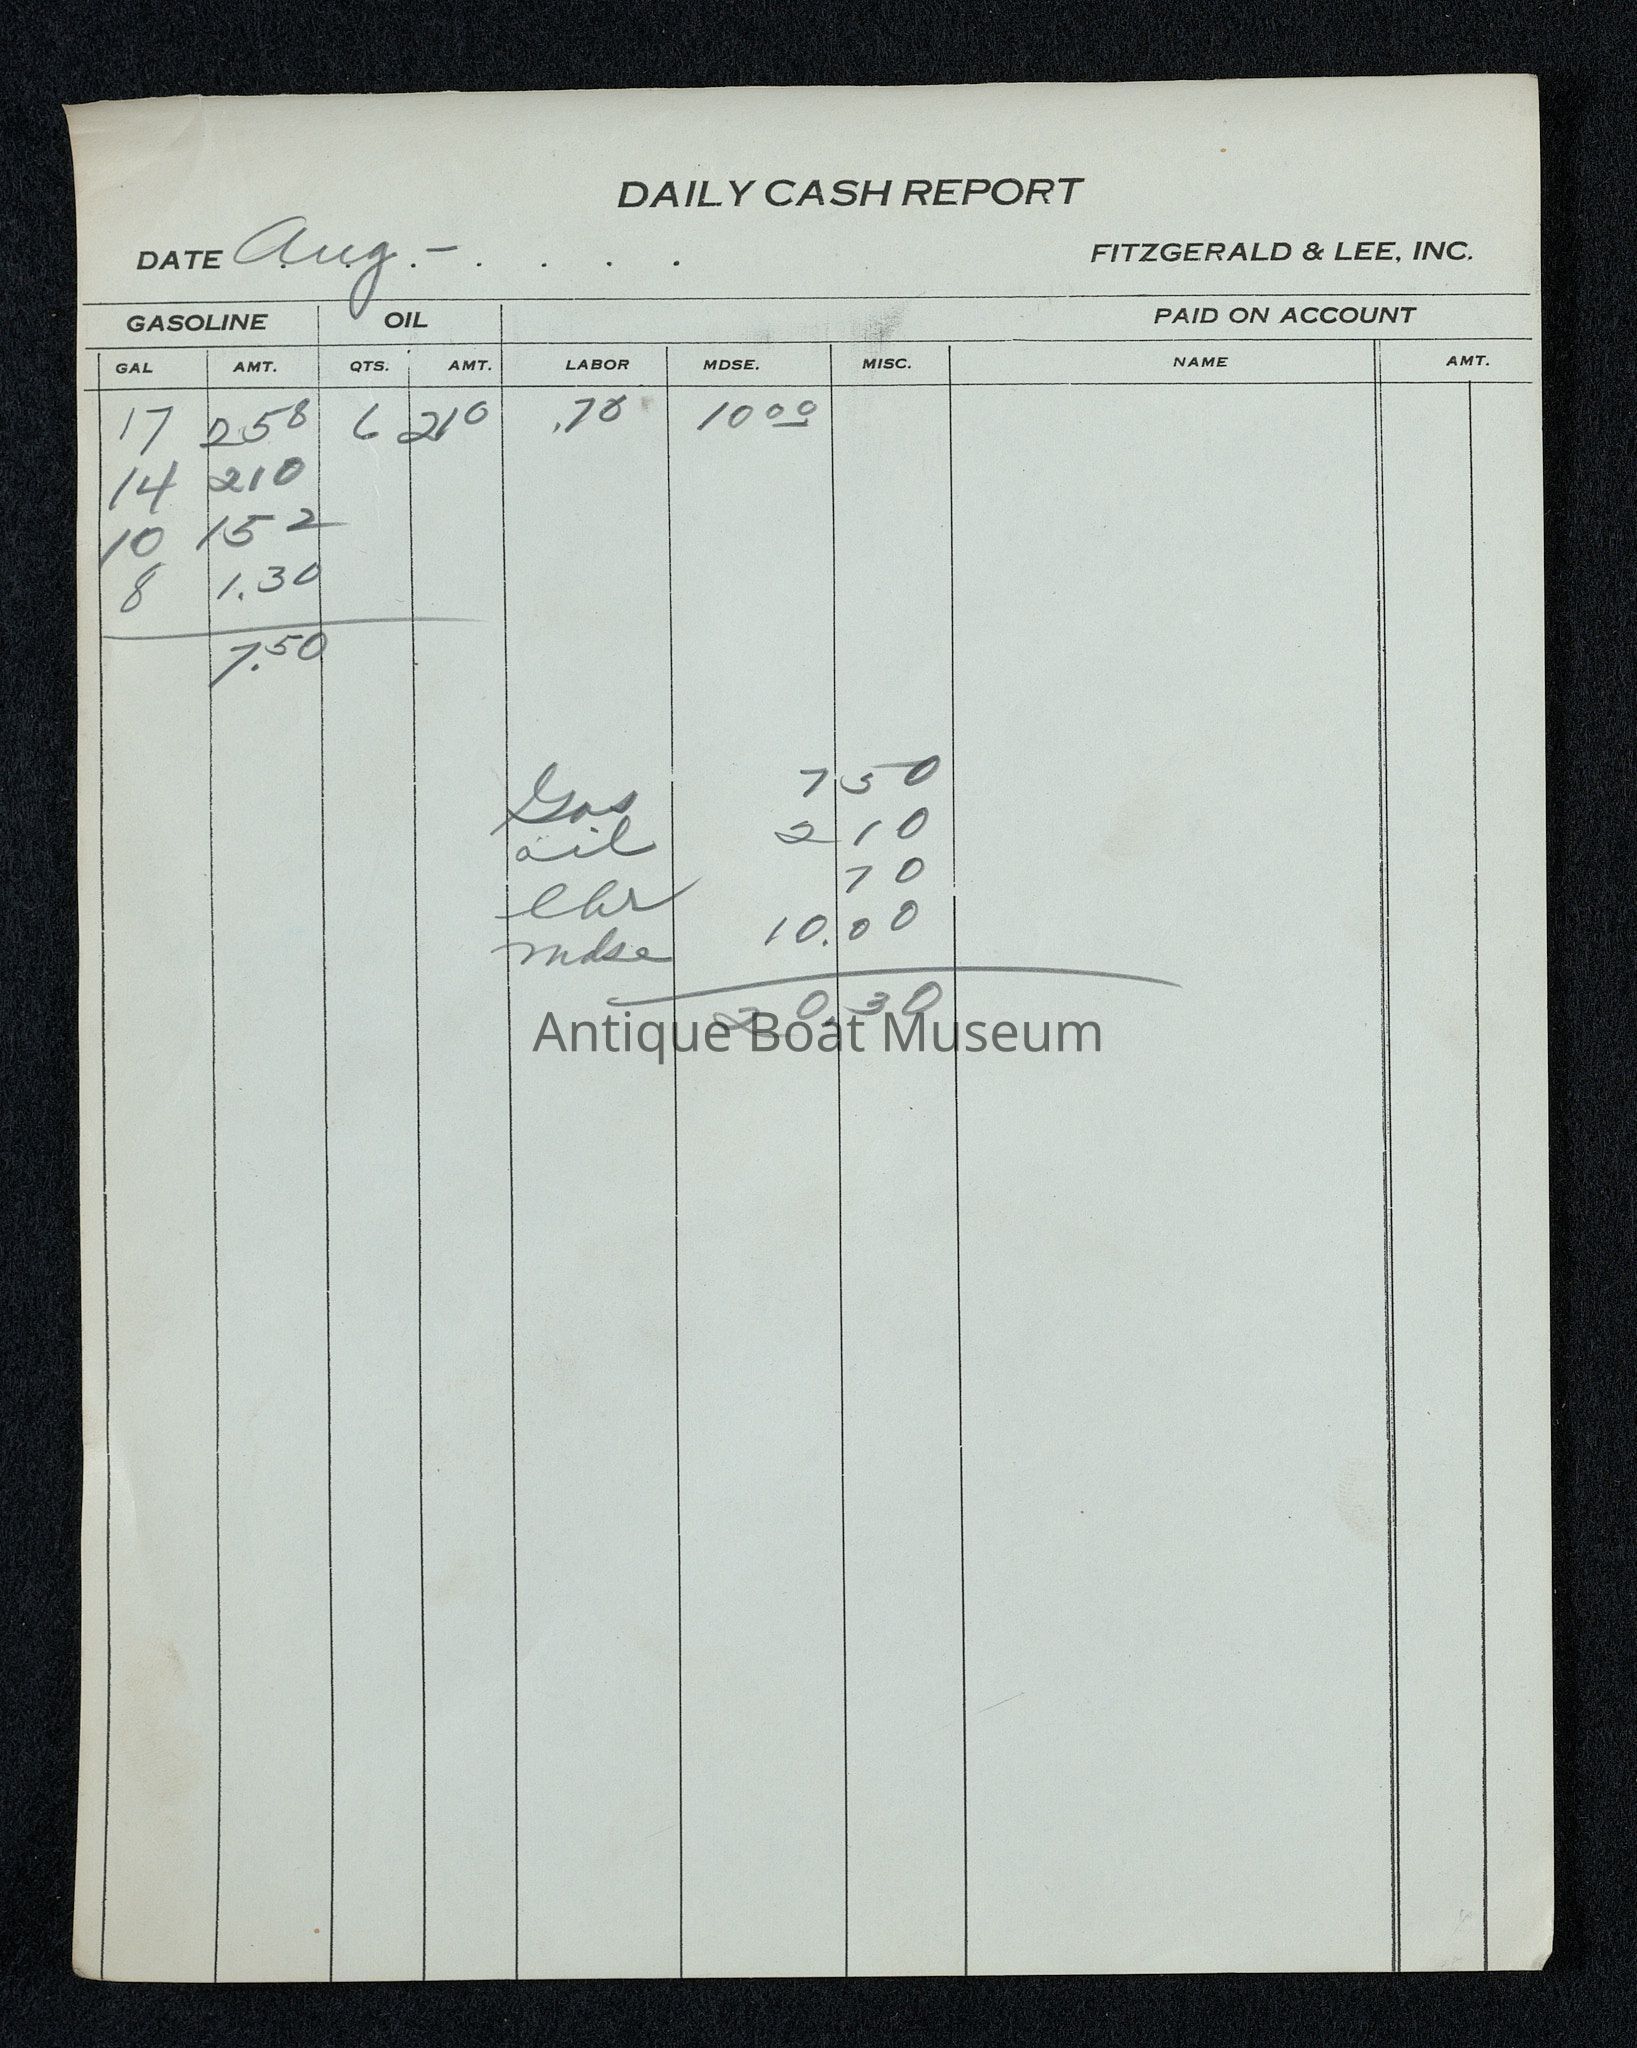 DAILY CASH REPORT
DATE Aug. - . . . .
FITZGERALD & LEE, INC.
GASOLINE OIL PAID ON ACCOUNT
GAL AMT. QTS. AMT. LABOR MDSE. MISC. NAME AMT.
17 258 6 210 .70 10 00
14 210
10 152
8 1.30
7.50
Gas 7 50
oil 2 10
70
Mdse 10.00
20.30
Antique Boat Museum